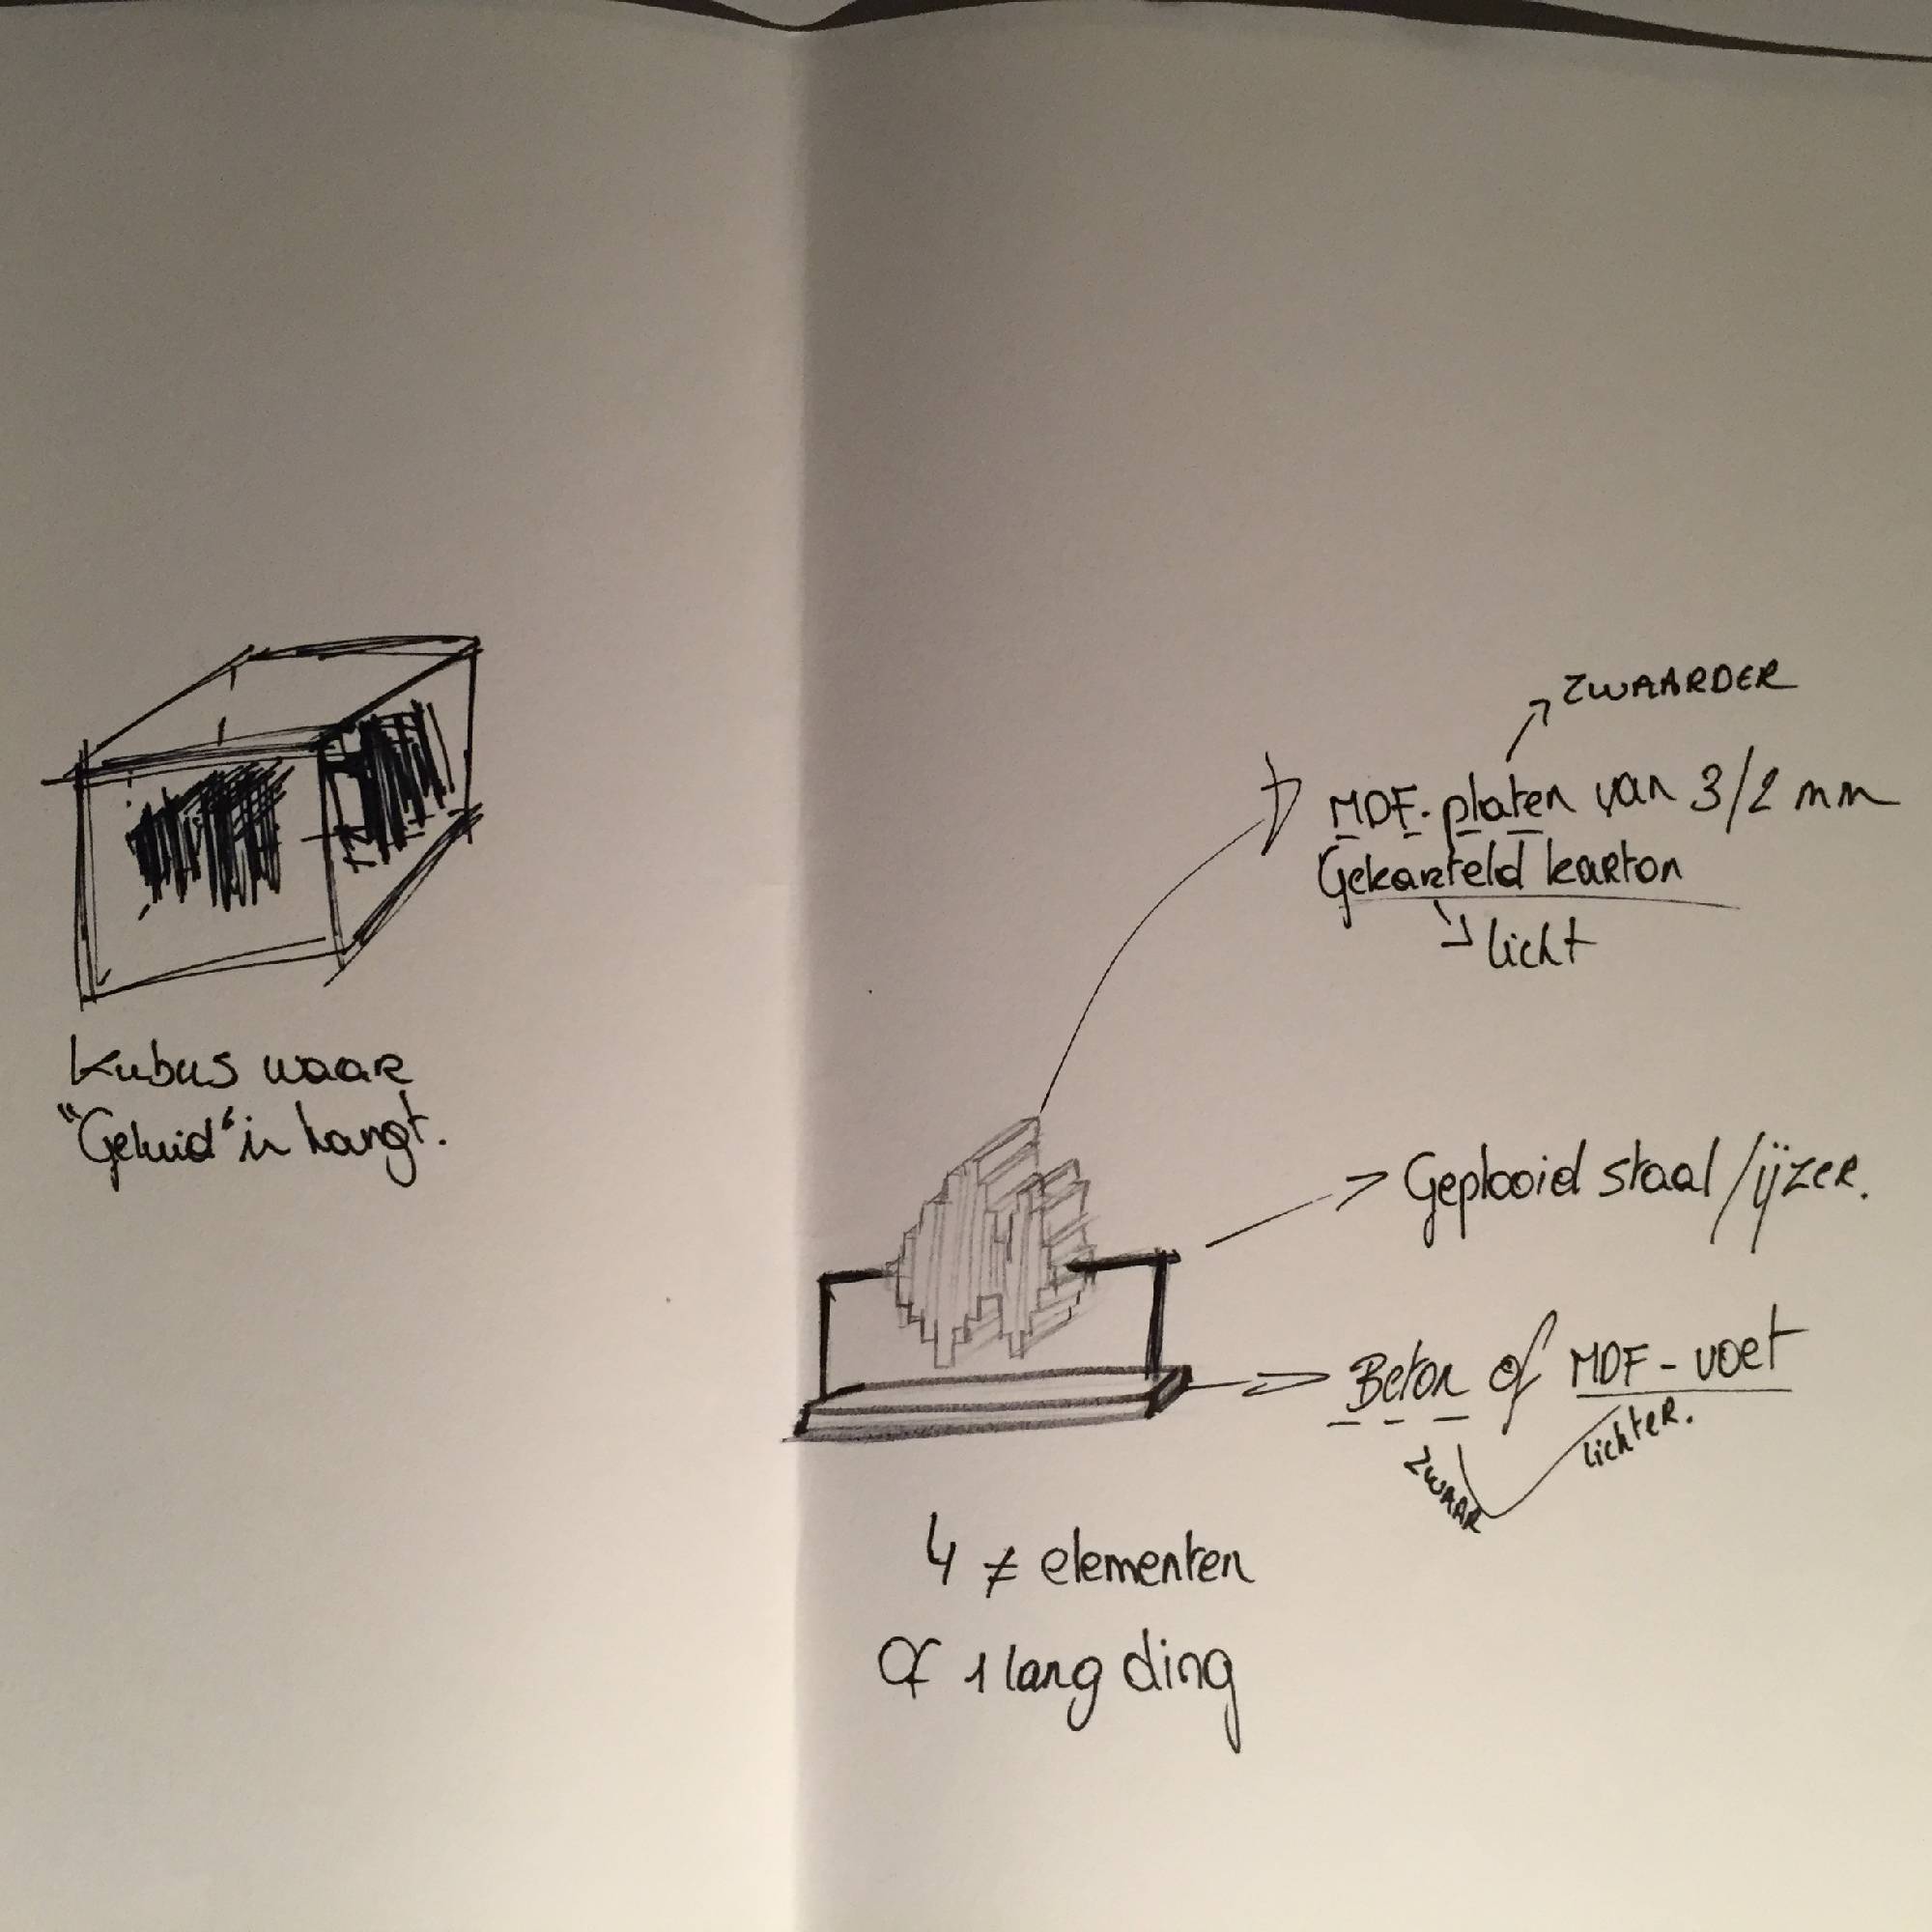 Kubus waar
"Geluid" in hangt.
ZWAARDER
MDF-platen van 3/2 mm
Gekarteld karton
licht
Geplooid staal/ijzer.
Beton of MDF-voet
ZWAAR
lichter.
4 ≠ elementen
Of 1 lang ding